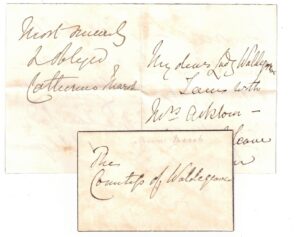 Most sincerely
& obliged
Catherine Marsh
My dear Lady Waldegrave
I am with
Mrs
leave
The
Countess of Waldegrave